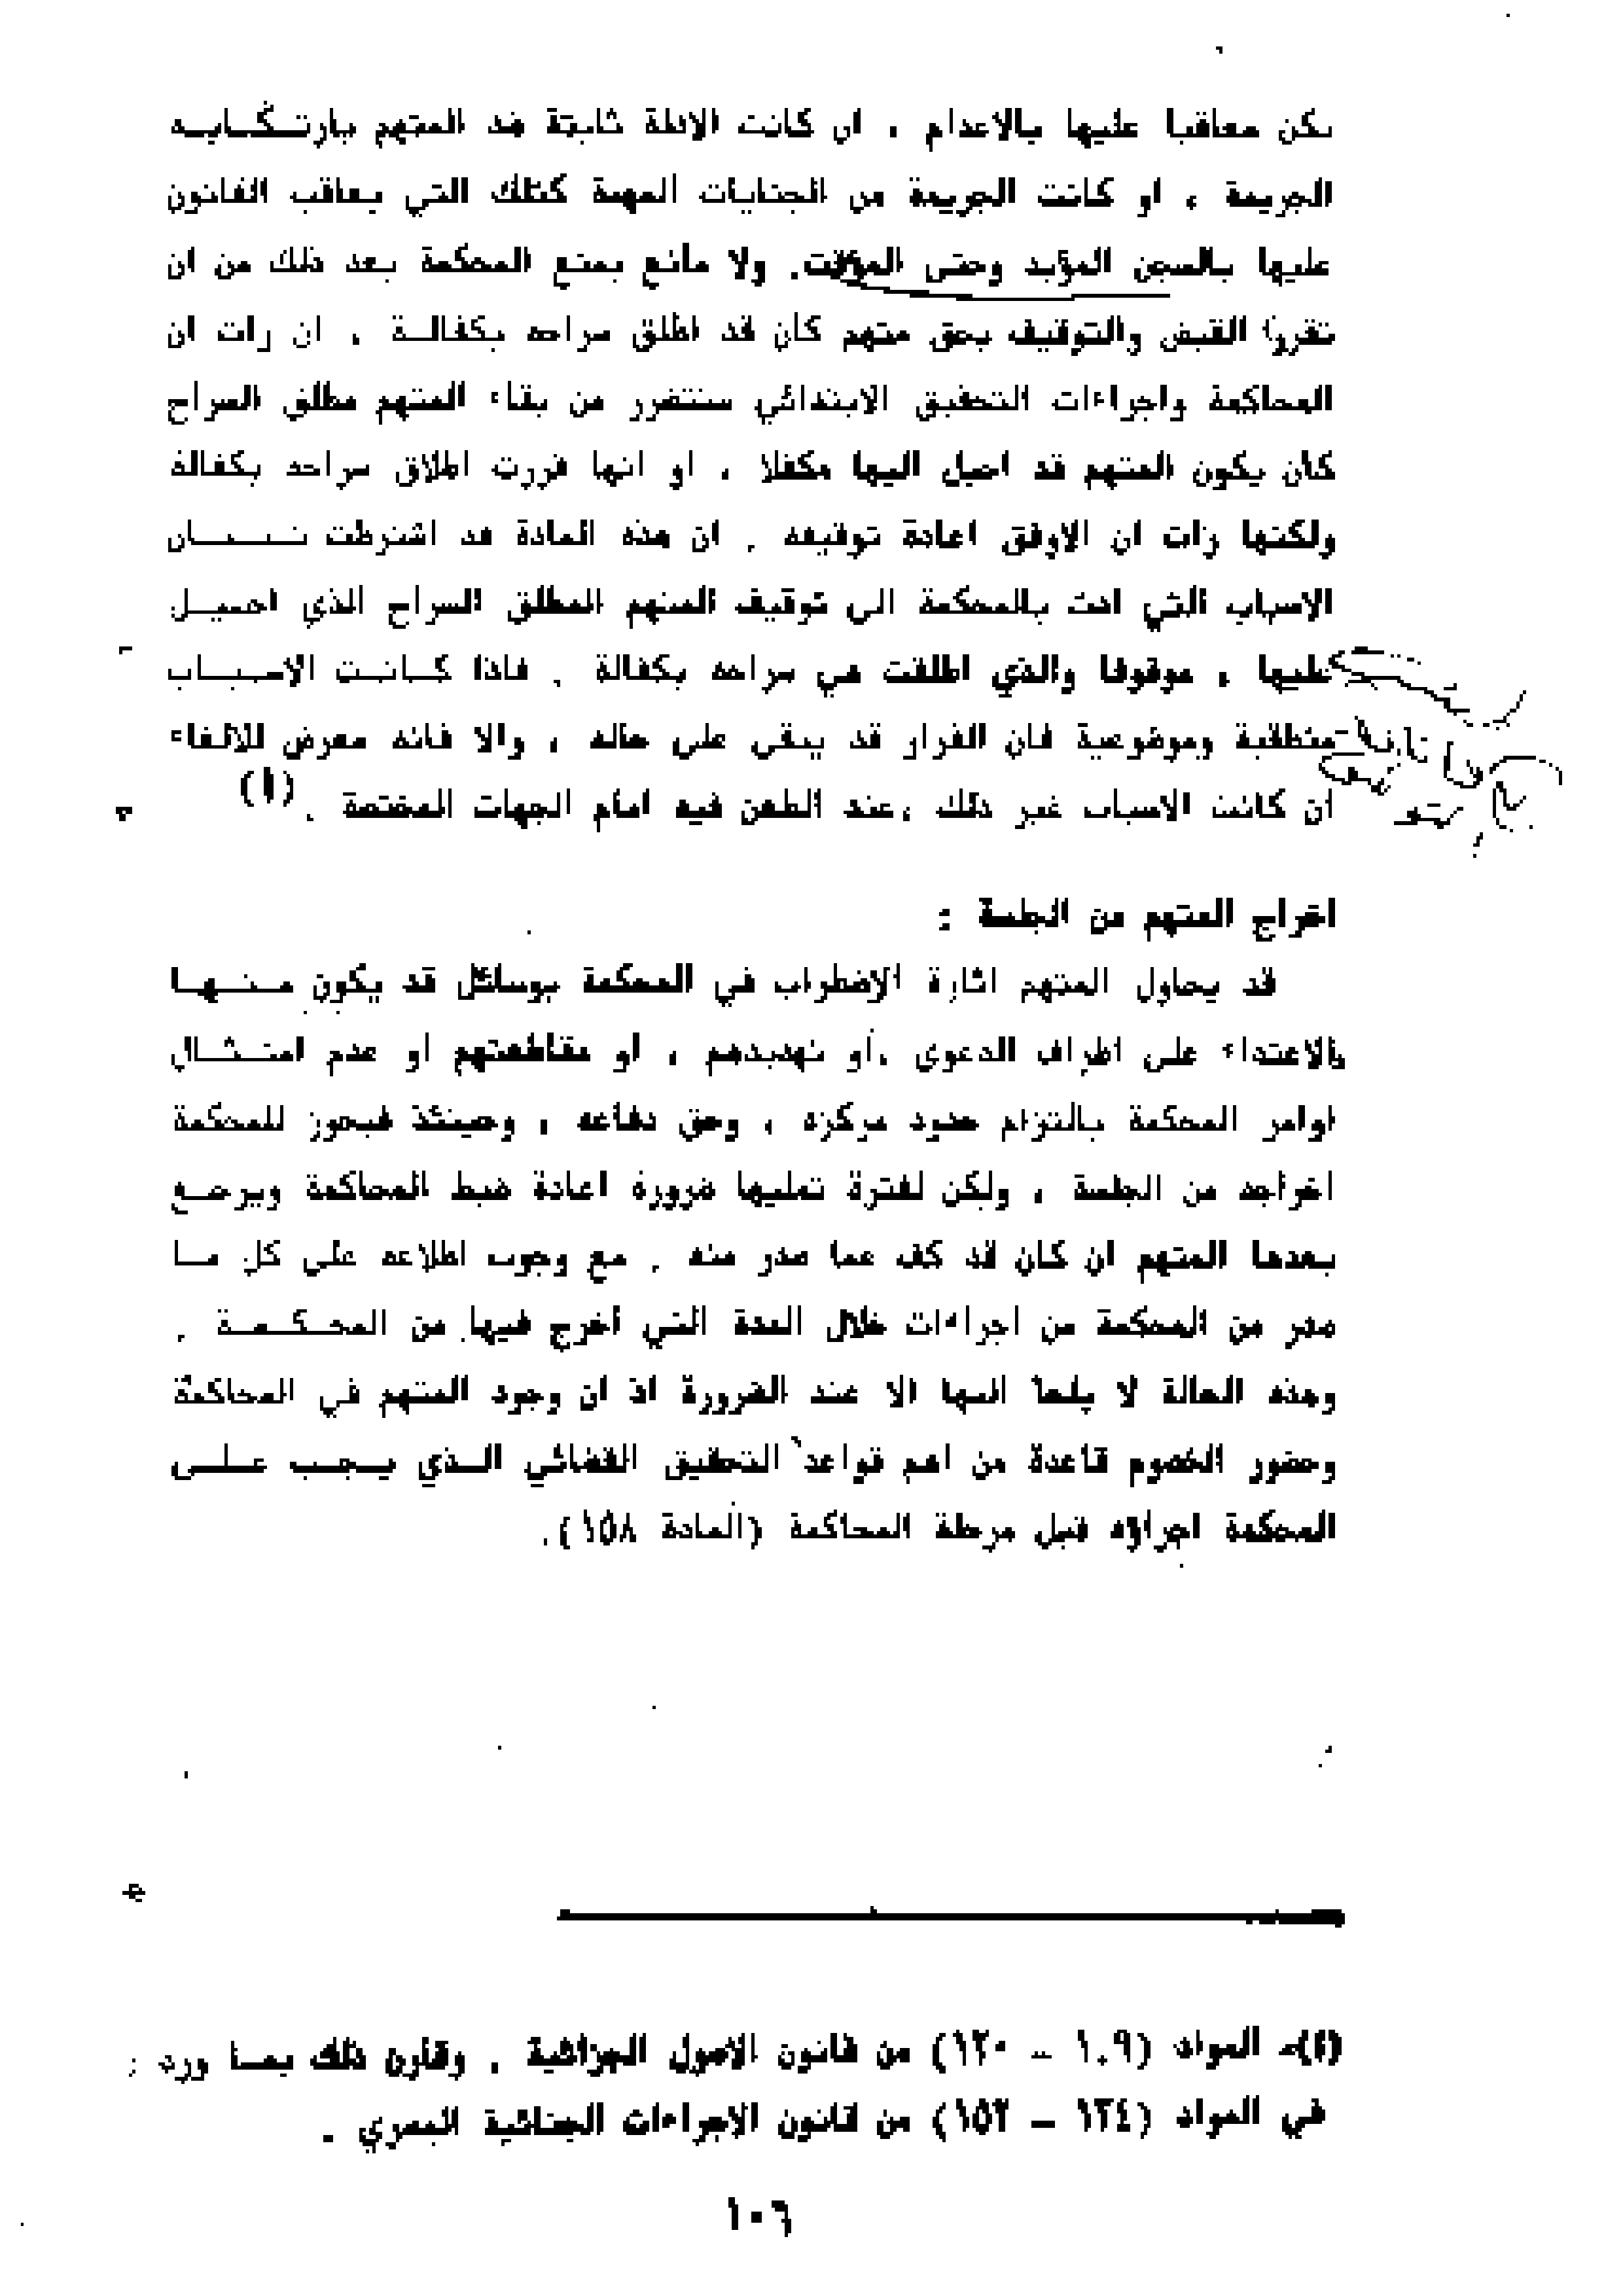 يكن معاقبا عليها بالاعدام ، ان كانت الادلة ثابتة ضد المتهم بارتكابه
الجريمة ، او كانت الجريمة من الجنايات المهمة كتلك التي يعاقب القانون
عليها بالسجن المؤبد وحتى المؤقت. ولا مانع يمنع المحكمة بعد ذلك من ان
تقرر القبض والتوقيف بحق متهم كان قد اطلق سراحه بكفالة ، ان رات ان
المحاكمة واجراءات التحقيق الابتدائي ستتضرر من بقاء المتهم مطلق السراح
كأن يكون المتهم قد احيل اليها مكفلا ، او انها قررت اطلاق سراحه بكفالة
ولكنها رات ان الاوفق اعادة توقيفه . ان هذه المادة قد اشترطت تبيان
الاسباب التي ادت بالمحكمة الى توقيف المتهم المطلق السراح الذي احيل
عليها ، موقوفا والذي اطلقت هي سراحه بكفالة . فاذا كانت الاسباب
منطقية وموضوعية فان القرار قد يبقى على حاله ، والا فانه معرض للالغاء
ان كانت الاسباب غير ذلك ،عند الطعن فيه امام الجهات المختصة .(١)
اخراج المتهم من الجلسة :
قد يحاول المتهم اثارة الاضطراب في المحكمة بوسائل قد يكون منها
والاعتداء على اطراف الدعوى ،أو تهديدهم ، او مقاطعتهم او عدم امتثال
اوامر المحكمة بالتزام حدود مركزه ، وحق دفاعه ، وحينئذ فيجوز للمحكمة
اخراجه من الجلسة ، ولكن لفترة تمليها ضرورة اعادة ضبط المحاكمة ويرجع
بعدها المتهم ان كان قد كف عما صدر منه . مع وجوب اطلاعه على كل ما
صدر من المحكمة من اجراءات خلال المدة التي اخرج فيها من المحكمة .
وهذه الحالة لا يلجأ اليها الا عند الضرورة اذ ان وجود المتهم في المحاكمة
وحضور الخصوم قاعدة من اهم قواعد التحقيق القضائي الذي يجب على
المحكمة اجراؤه قبل مرحلة المحاكمة (المادة ١٥٨).
(١)- المواد (١٠٩ - ١٢٠) من قانون الاصول الجزائية . وقارن ذلك بما ورد
في المواد (١٣٤ - ١٥٢) من قانون الاجراءات الجنائية المصري .
١٠٦